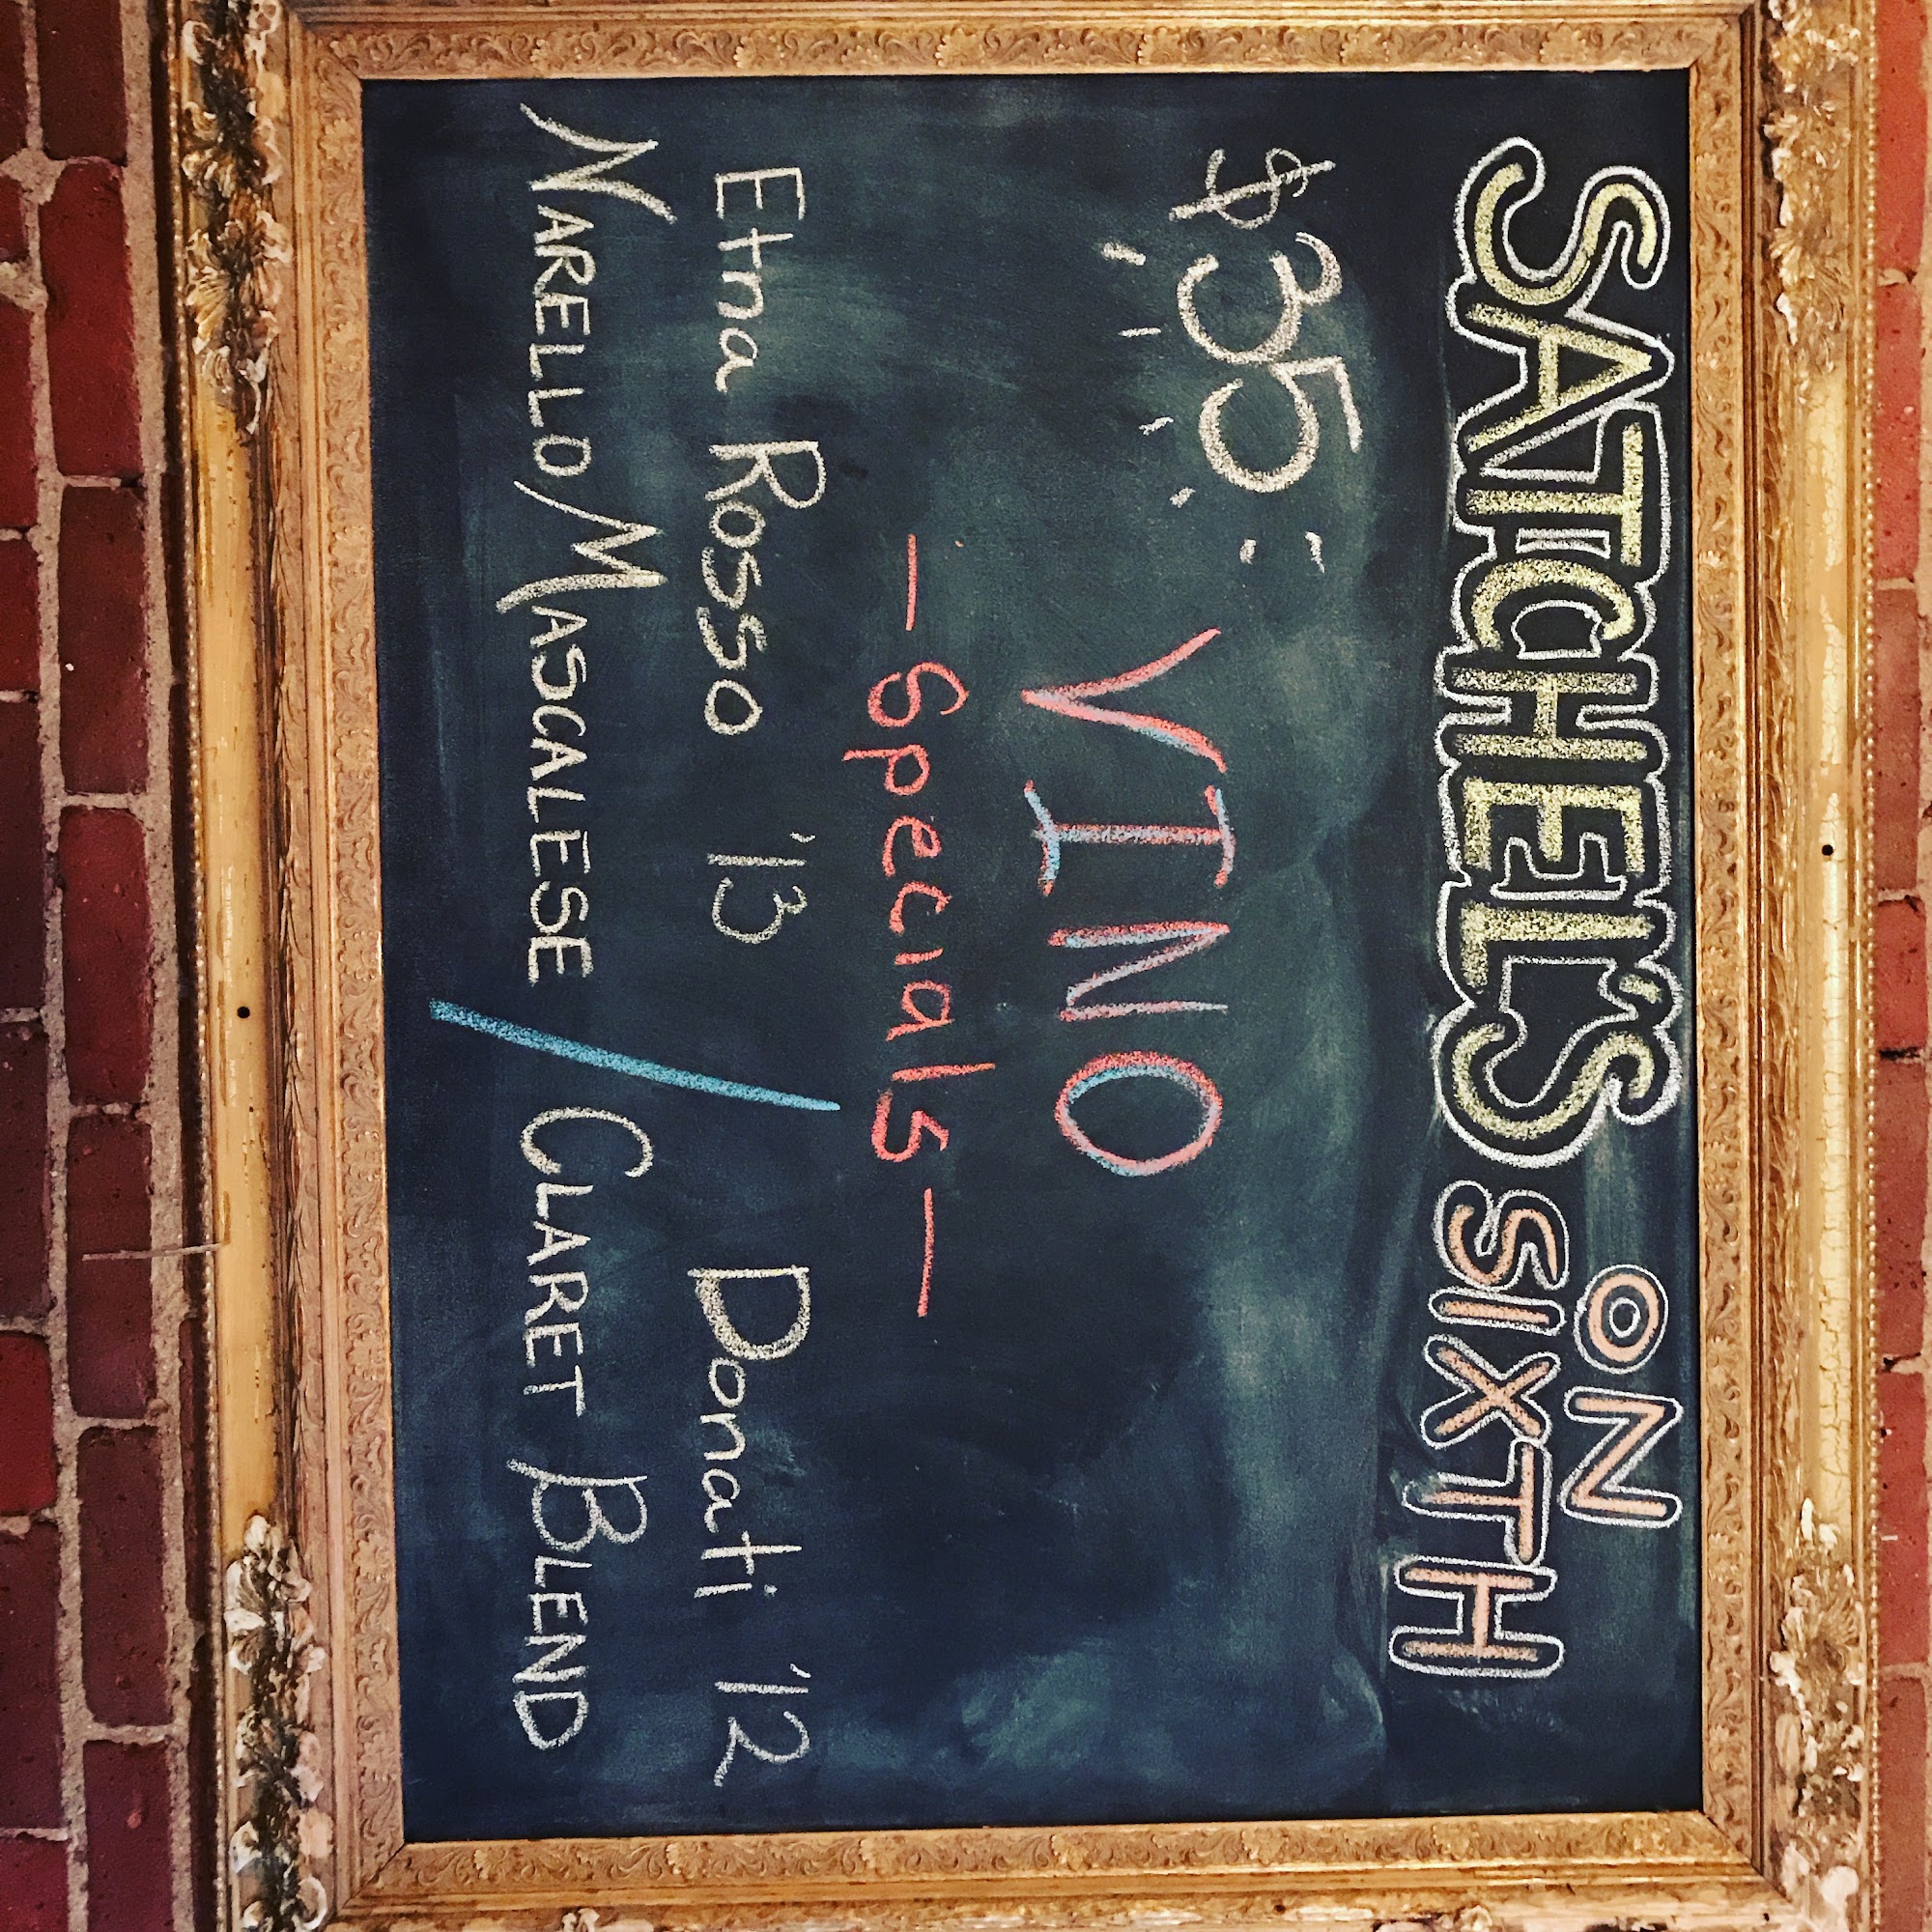 SATCHEL'S ON SIXTH
$35
VINO
- Specials -
Etna Rosso '13 / Donati '12
NARELLO MASCALESE / CLARET BLEND